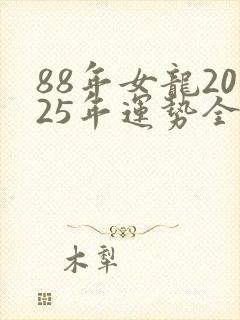 88年女龍20
25年運勢全
木犁